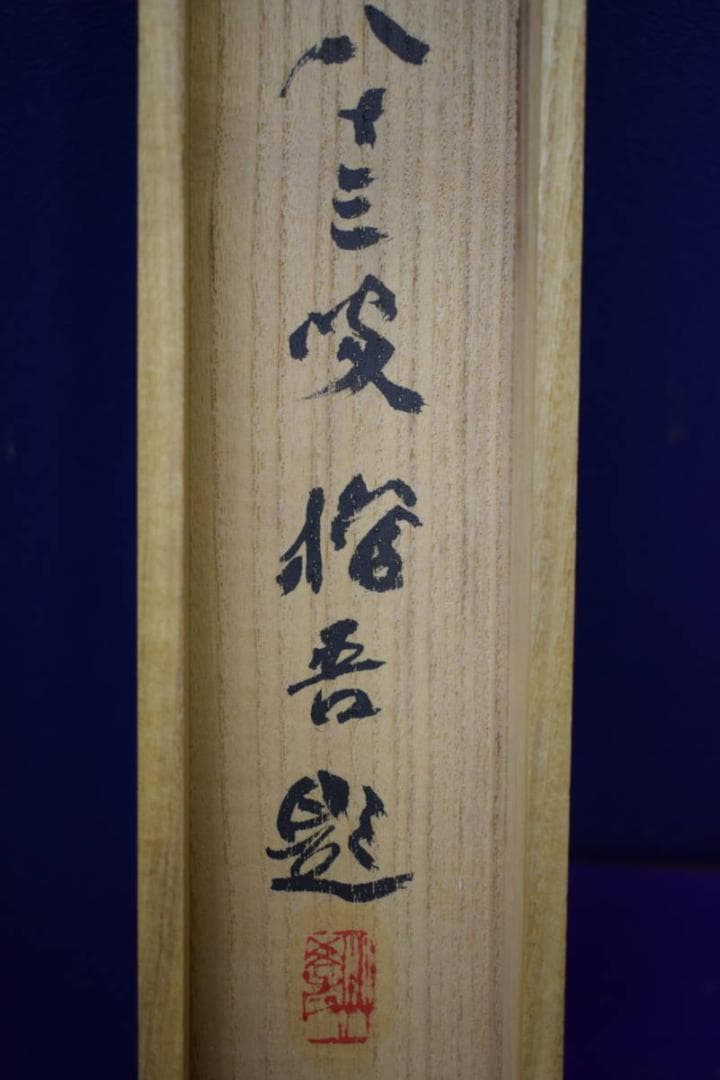 八十三叟 吾題